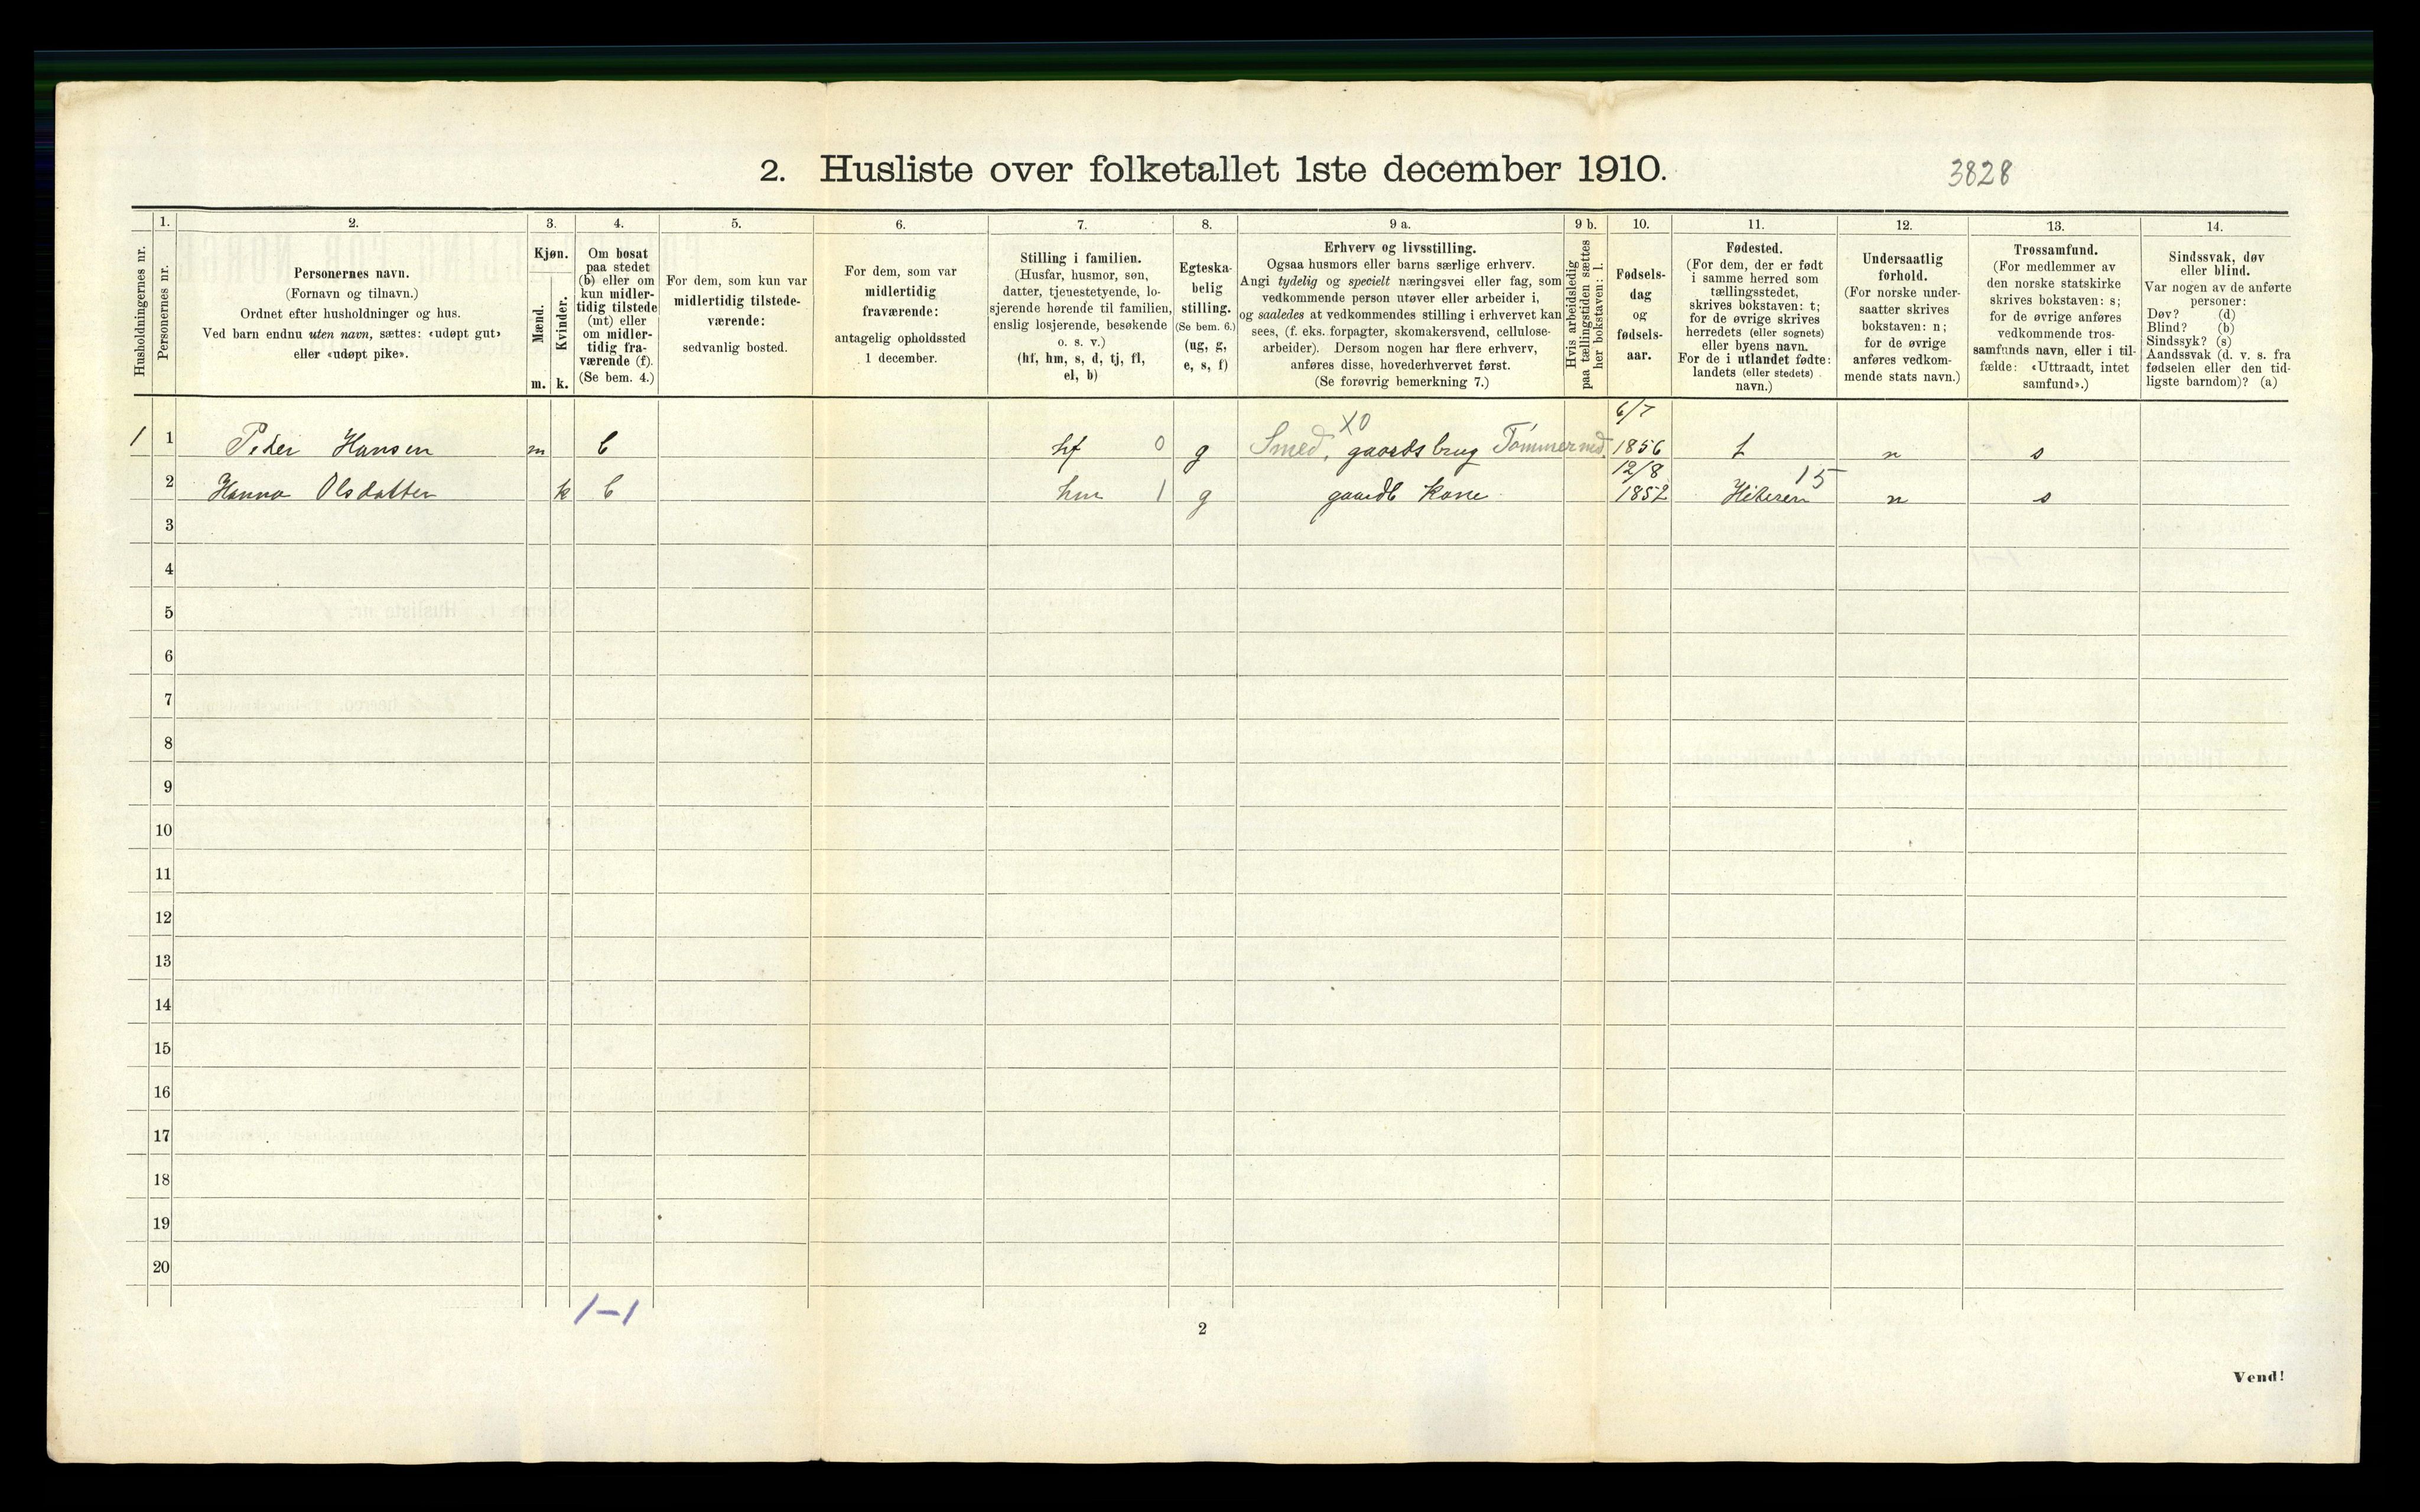 2. Husliste over folketallet 1ste december 1910.
3828
Husholdningernes nr.
1.
Personernes nr.
2.
Personernes navn.
(Fornavn og tilnavn.)
Ordnet efter husholdninger og hus.
Ved barn endnu uten navn, sættes: «udøpt gut»
eller «udøpt pike».
3.
Kjøn.
Mænd.
Kvinder.
m. k.
4.
Om bosat
paa stedet
(b) eller om
kun midler-
tidig tilstede
(mt) eller
om midler-
tidig fra-
værende (f).
(Se bem. 4.)
5.
For dem, som kun var
midlertidig tilstede-
værende:
sedvanlig bosted.
6.
For dem, som var
midlertidig
fraværende:
antagelig opholdssted
1 december.
7.
Stilling i familien.
(Husfar, husmor, søn,
datter, tjenestetyende, lo-
sjerende hørende til familien,
enslig losjerende, besøkende
o. s. v.)
(hf, hm, s, d, tj, fl,
el, b)
8.
Egteska-
belig
stilling.
(Se bem. 6.)
(ug, g,
e, s, f)
9 a.
Erhverv og livsstilling.
Ogsaa husmors eller barns særlige erhverv.
Angi tydelig og specielt næringsvei eller fag, som
vedkommende person utøver eller arbeider i,
og saaledes at vedkommendes stilling i erhvervet kan
sees, (f. eks. forpagter, skomakersvend, cellulose-
arbeider). Dersom nogen har flere erhverv,
anføres disse, hovederhvervet først.
(Se forøvrig bemerkning 7.)
9 b.
Hvis arbeidsledig
paa tællingstiden sættes
her bokstaven: l.
10.
Fødsels-
dag
og
fødsels-
aar.
11.
Fødested.
(For dem, der er født
i samme herred som
tællingsstedet,
skrives bokstaven: t;
for de øvrige skrives
herredets (eller sognets)
eller byens navn.
For de i utlandet fødte:
landets (eller stedets)
navn.)
12.
Undersaatlig
forhold.
(For norske under-
saatter skrives
bokstaven: n;
for de øvrige
anføres vedkom-
mende stats navn.)
13.
Trossamfund.
(For medlemmer av
den norske statskirke
skrives bokstaven: s;
for de øvrige anføres
vedkommende tros-
samfunds navn, eller i til-
fælde: «Uttraadt, intet
samfund».)
14.
Sindssvak, døv
eller blind.
Var nogen av de anførte
personer:
Døv? (d)
Blind? (b)
Sindssyk? (s)
Aandssvak (d. v. s. fra
fødselen eller den tid-
ligste barndom)? (a)
X0 6/7
1 1 Peder Hansen m b hf 0 g Smed, gaardsbrug Tömmermd. 1856 t n s
12/8 15
2 Hanna Olsdatter k b hm 1 g gaardb kone 1852 Hiteren n s
3
4
5
6
7
8
9
10
11
12
13
14
15
16
17
18
19
20
1-1
2
Vend!